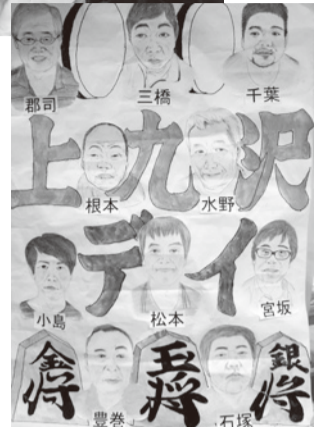 郡司 三橋 千葉
上九沢
根本 水野
デイ
小島 松本 宮坂
金将 玉将 銀将
豊巻 石塚